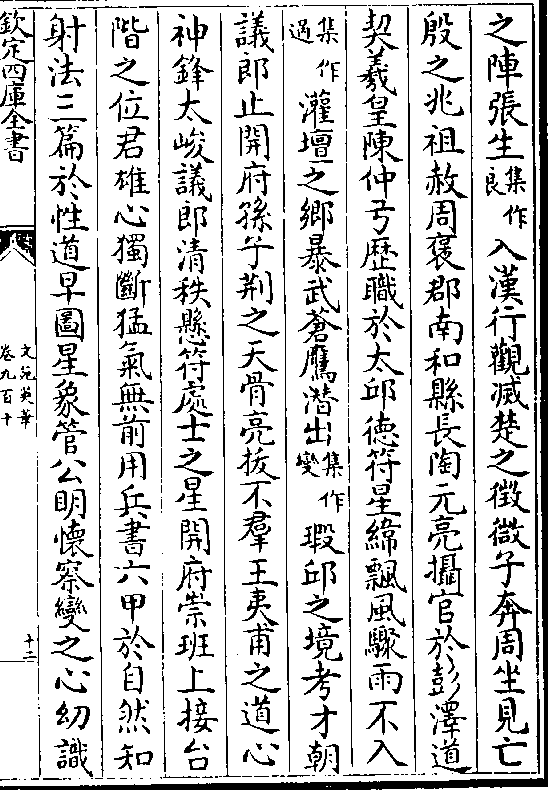 之陣張生集作良入漢行觀滅楚之徵微子奔周坐見亡
殷之兆祖赦周襃郡南和縣長陶元亮攝官於彭澤道
契羲皇陳仲弓歴職於太邱德符星緯飄風驟雨不入
集作過灌壇之鄉暴武蒼鷹潛出集作變瑕邱之境考才朝
議郎止開府孫子荆之天骨亮拔不羣王夷甫之道心
神鋒太峻議郎清秩懸符處士之星開府崇班上接台
階之位君雄心獨斷猛氣無前用兵書六甲於自然知
射法三篇於性道早圖星象管公明懷察變之心幼識
欽定四庫全書
文苑英華
卷九百十
十二